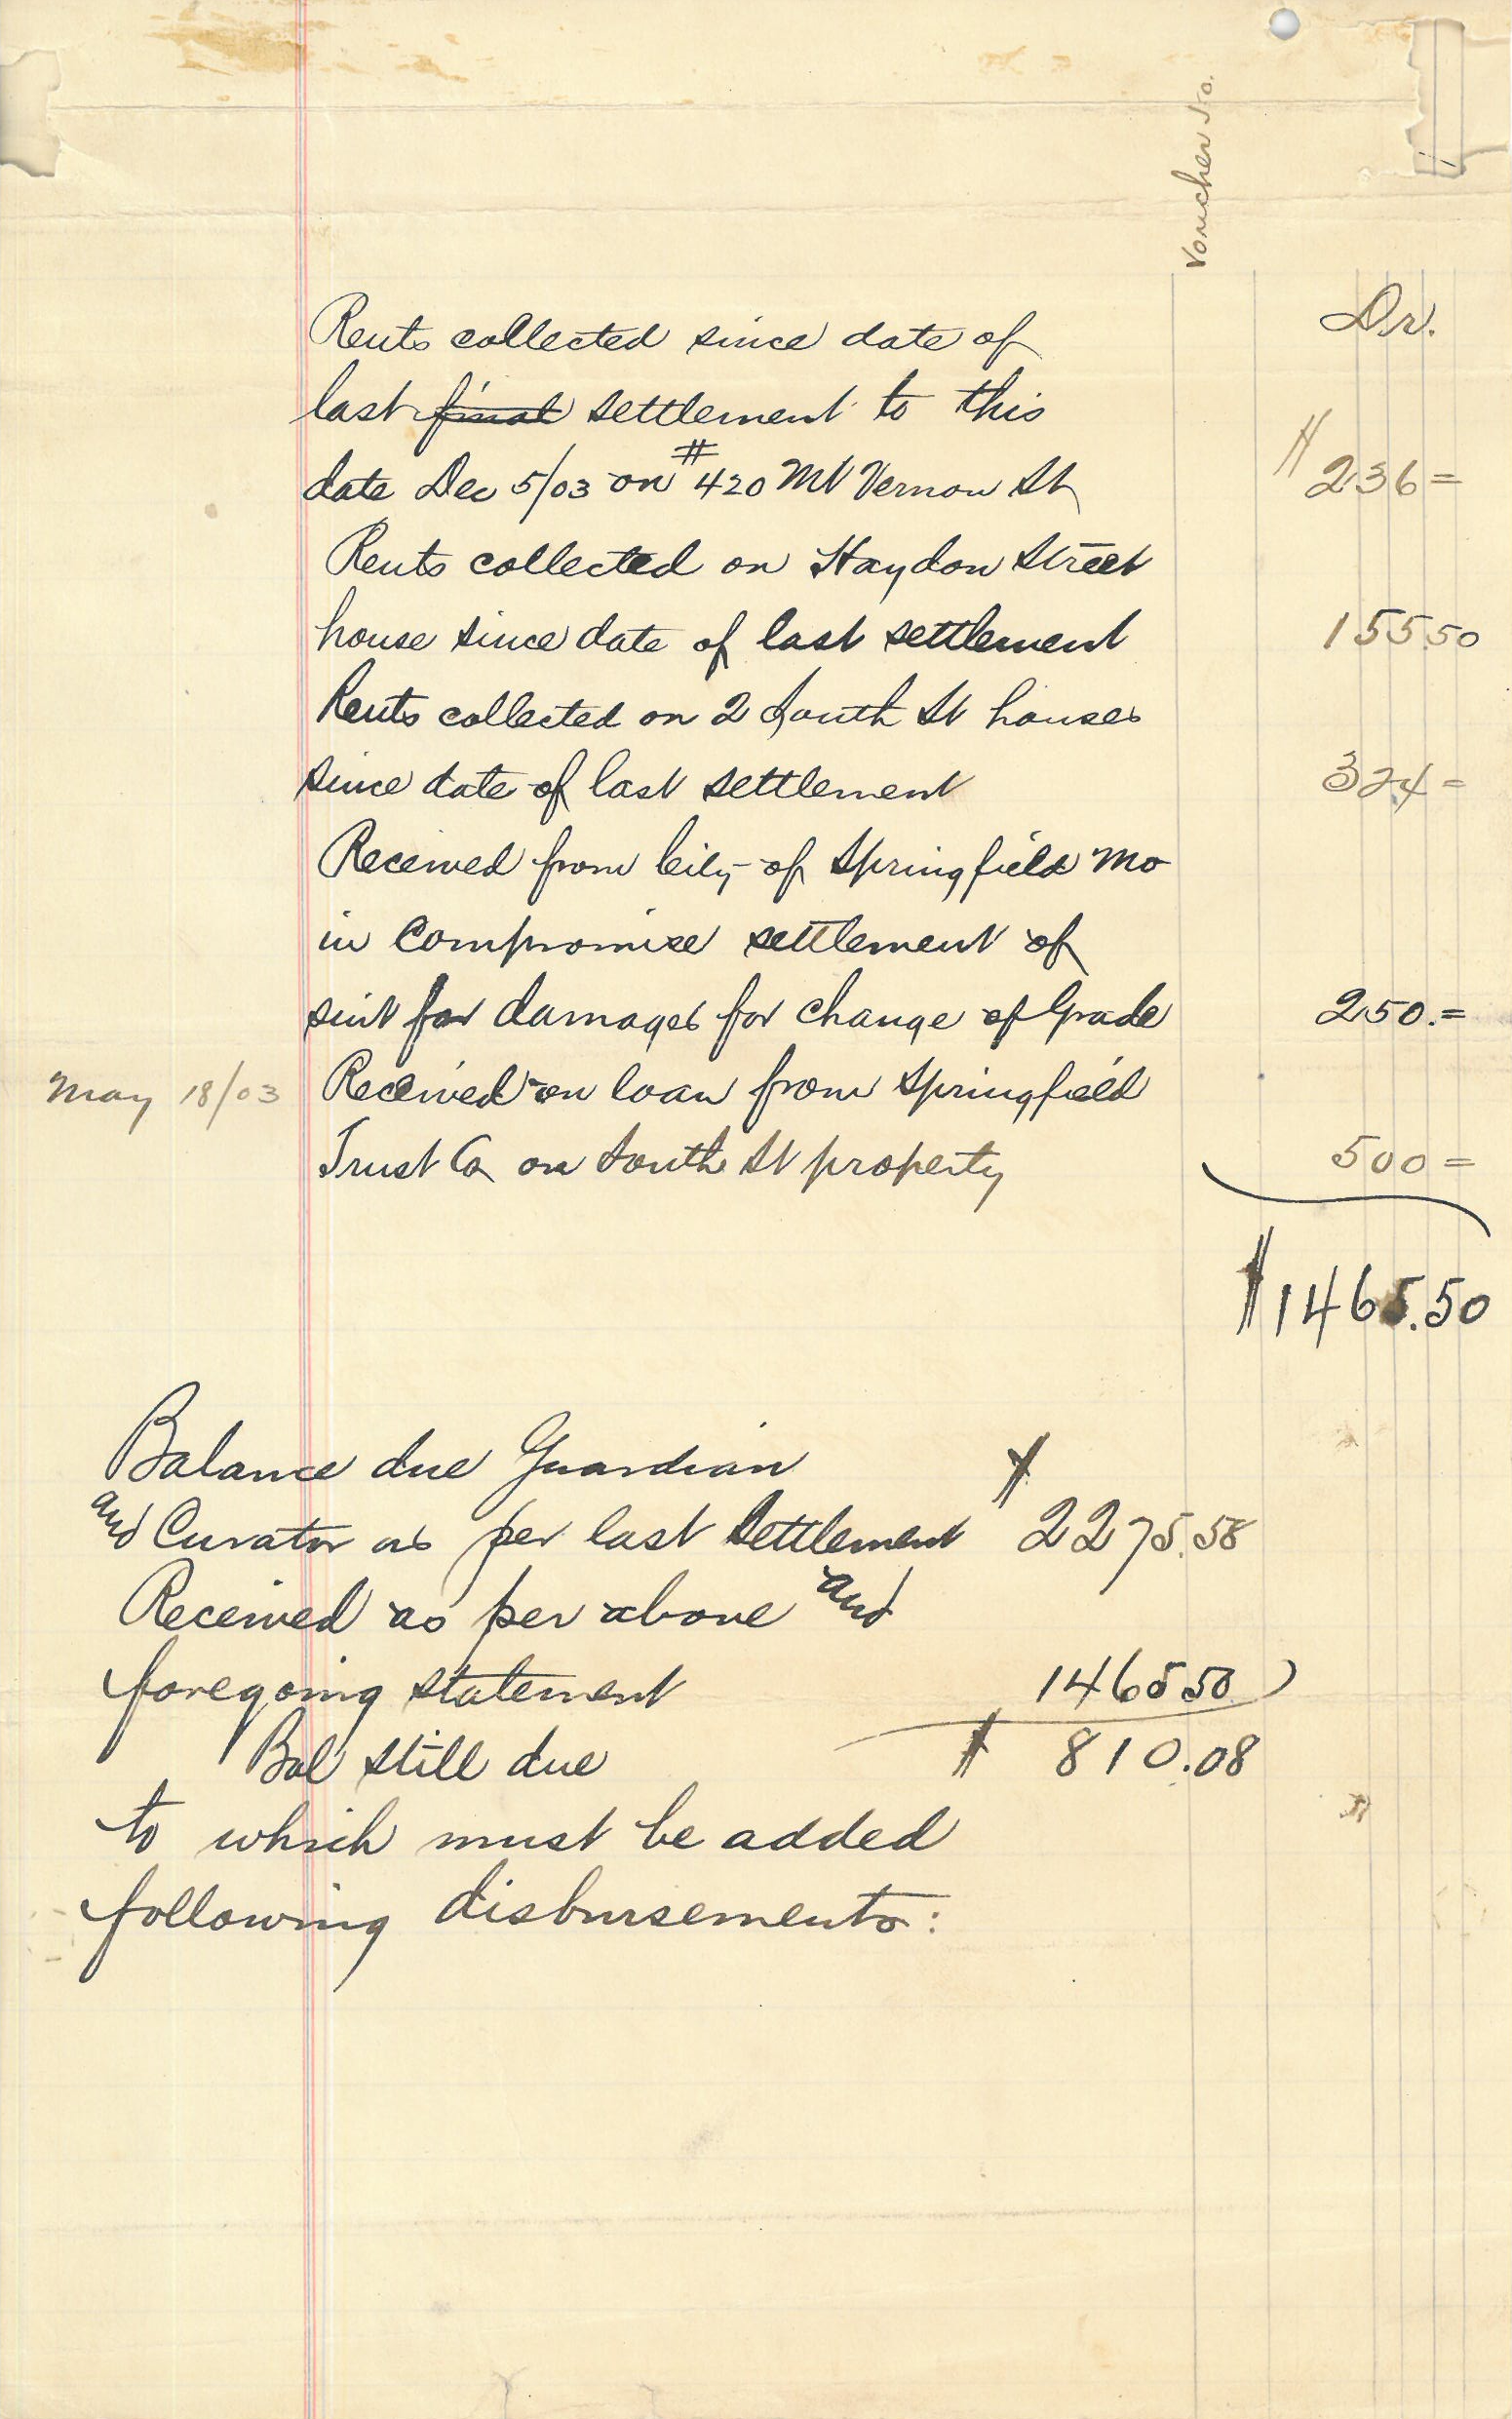 Voucher No.
Dr.
Rents collected since date of
last final settlement to this
date Dec 5/03 on #420 Mt Vernon St $236=
Rents collected on Haydon Street
house since date of last settlement 155.50
Rents collected on 2 South St houses
since date of last settlement 324=
Received from City of Springfield Mo
in Compromise settlement of
suit for damages for change of Grade 250.=
May 18/03 Received on loan from Springfield
Trust Co on South St property 500=
$1465.50
Balance due Guardian $
and Curator as per last settlement 2275.58
Received as per above and
foregoing statement 1465 50
Bal still due $ 810.08
to which must be added
following disbursements: